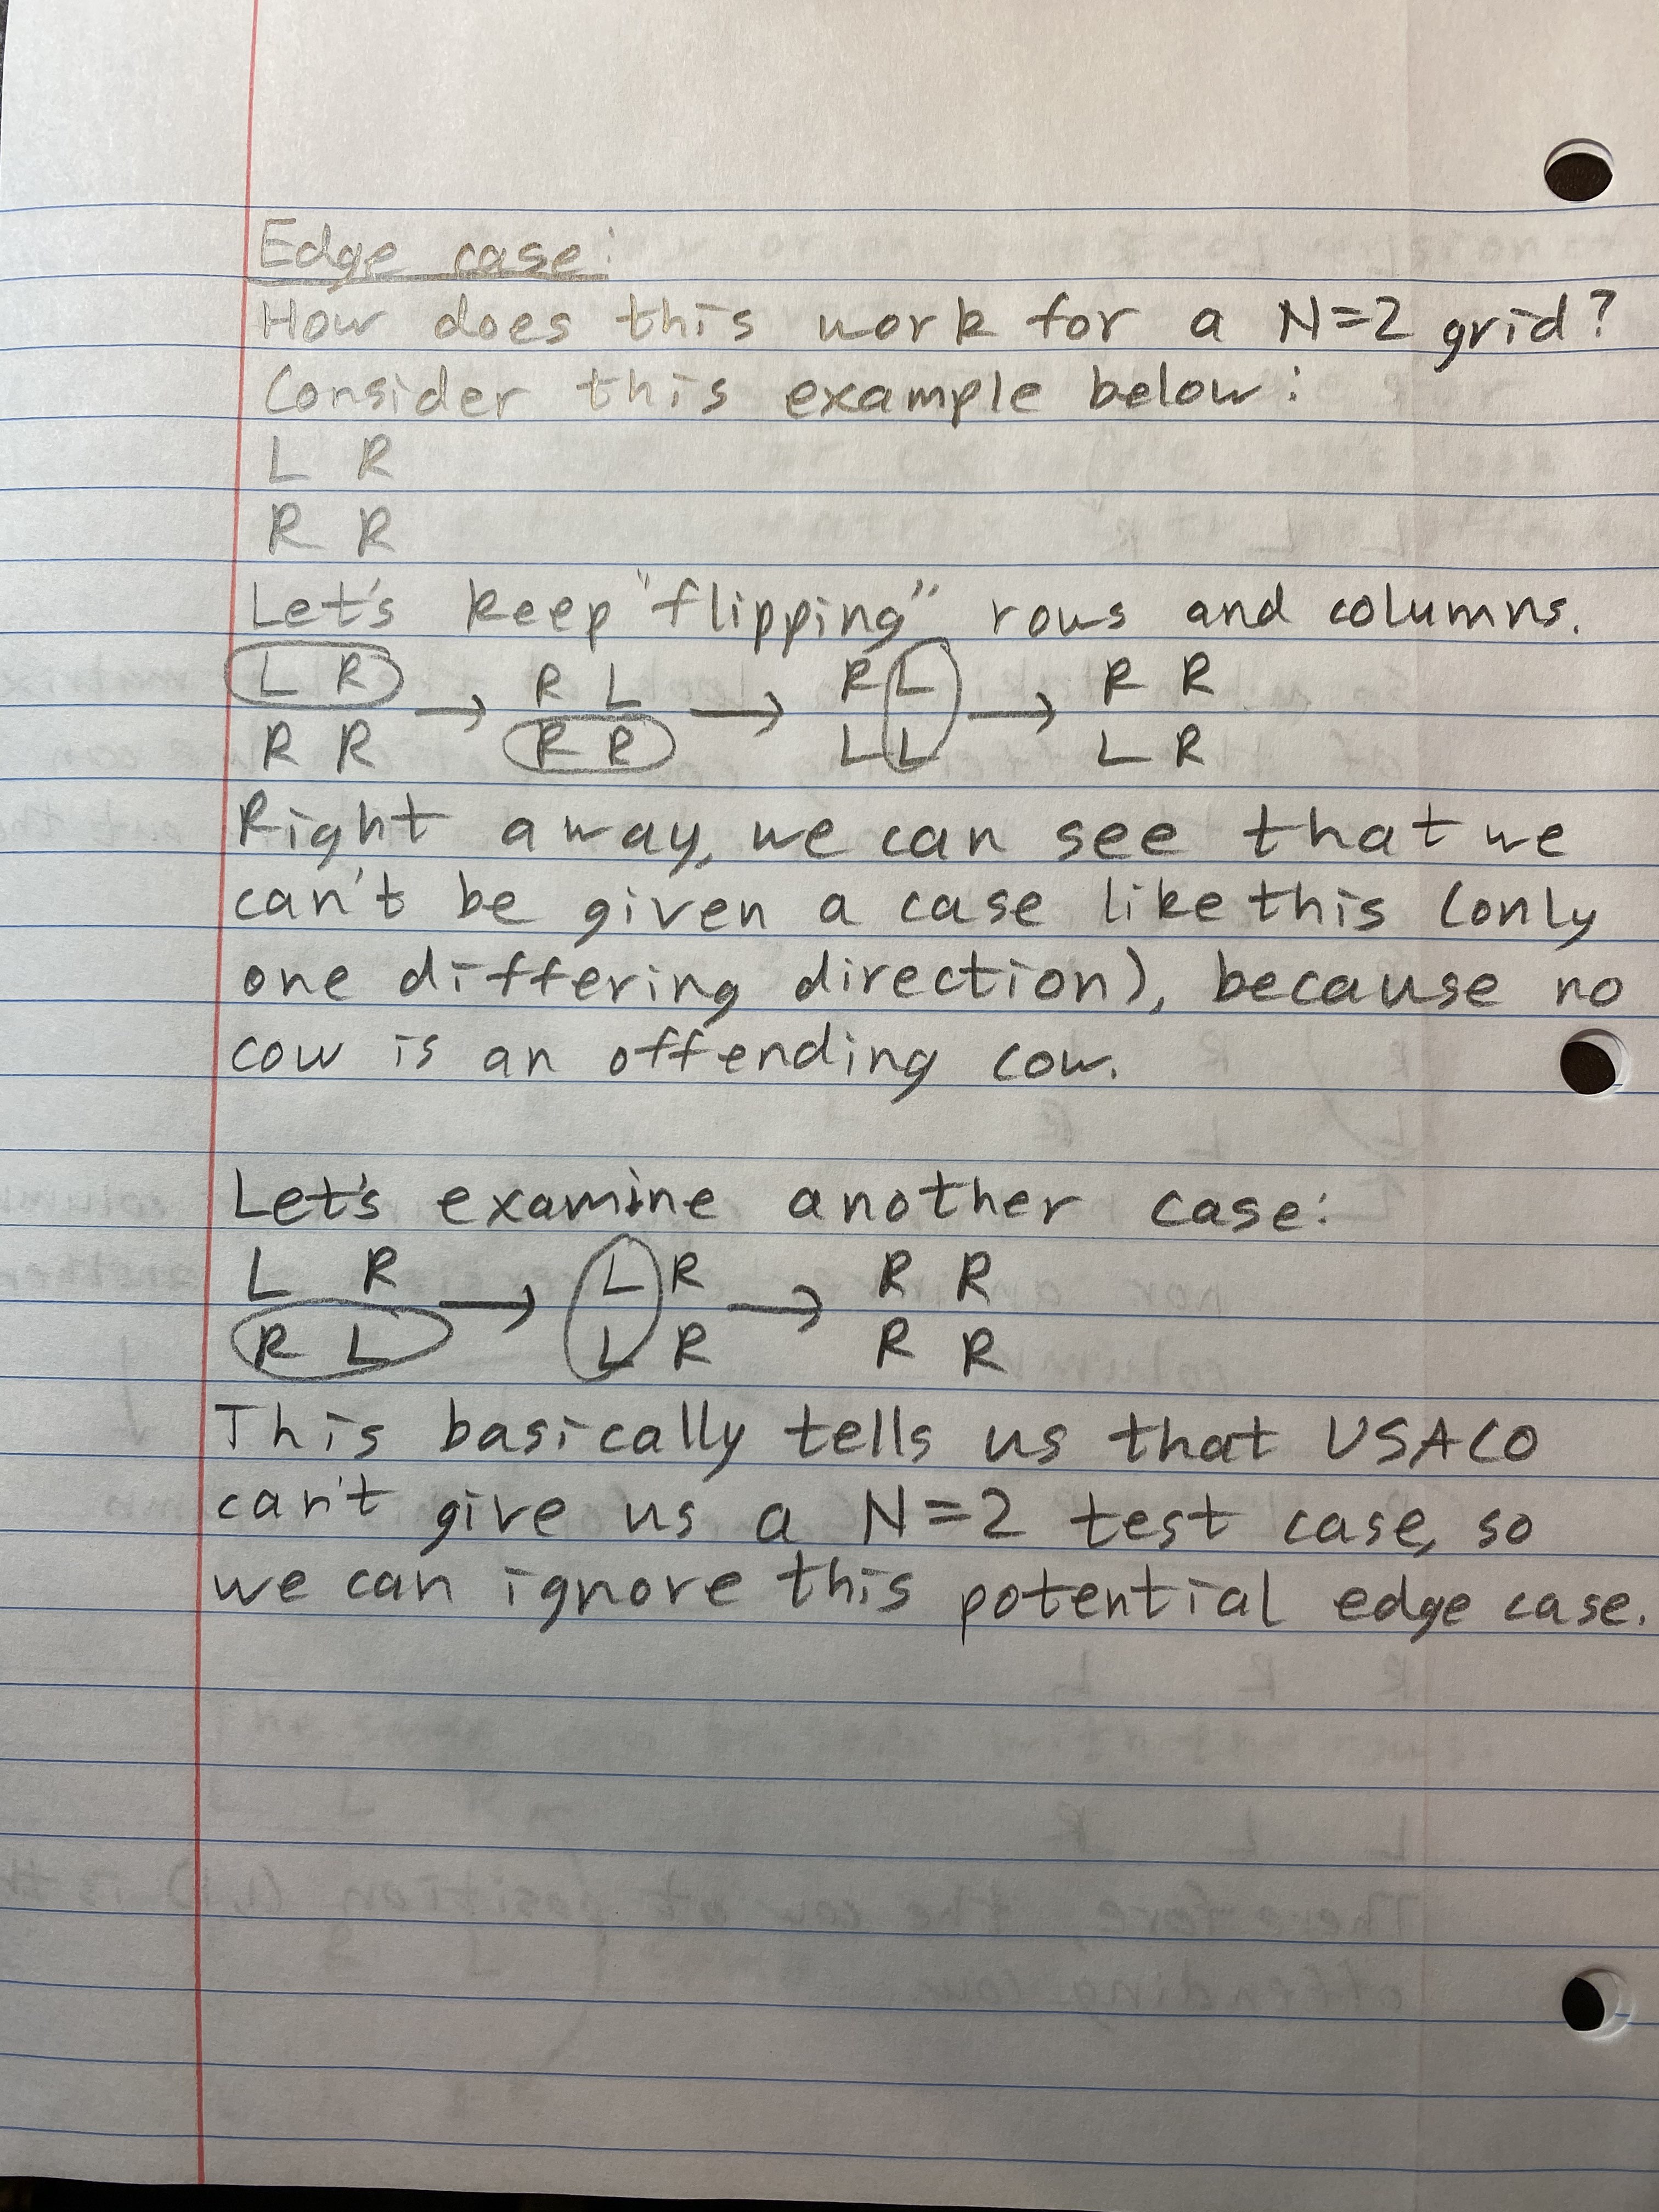 Edge case:
How does this work for a N=2 grid?
Consider this example below:
L R
R R
Let's keep "flipping" rows and columns.
L R → R L → R L → R R
R R R R L L L R
Right away, we can see that we
can't be given a case like this (only
one differing direction), because no
cow is an offending cow.
Let's examine another case:
L R → L R → R R
R L L R R R
This basically tells us that USACO
can't give us a N=2 test case, so
we can ignore this potential edge case.